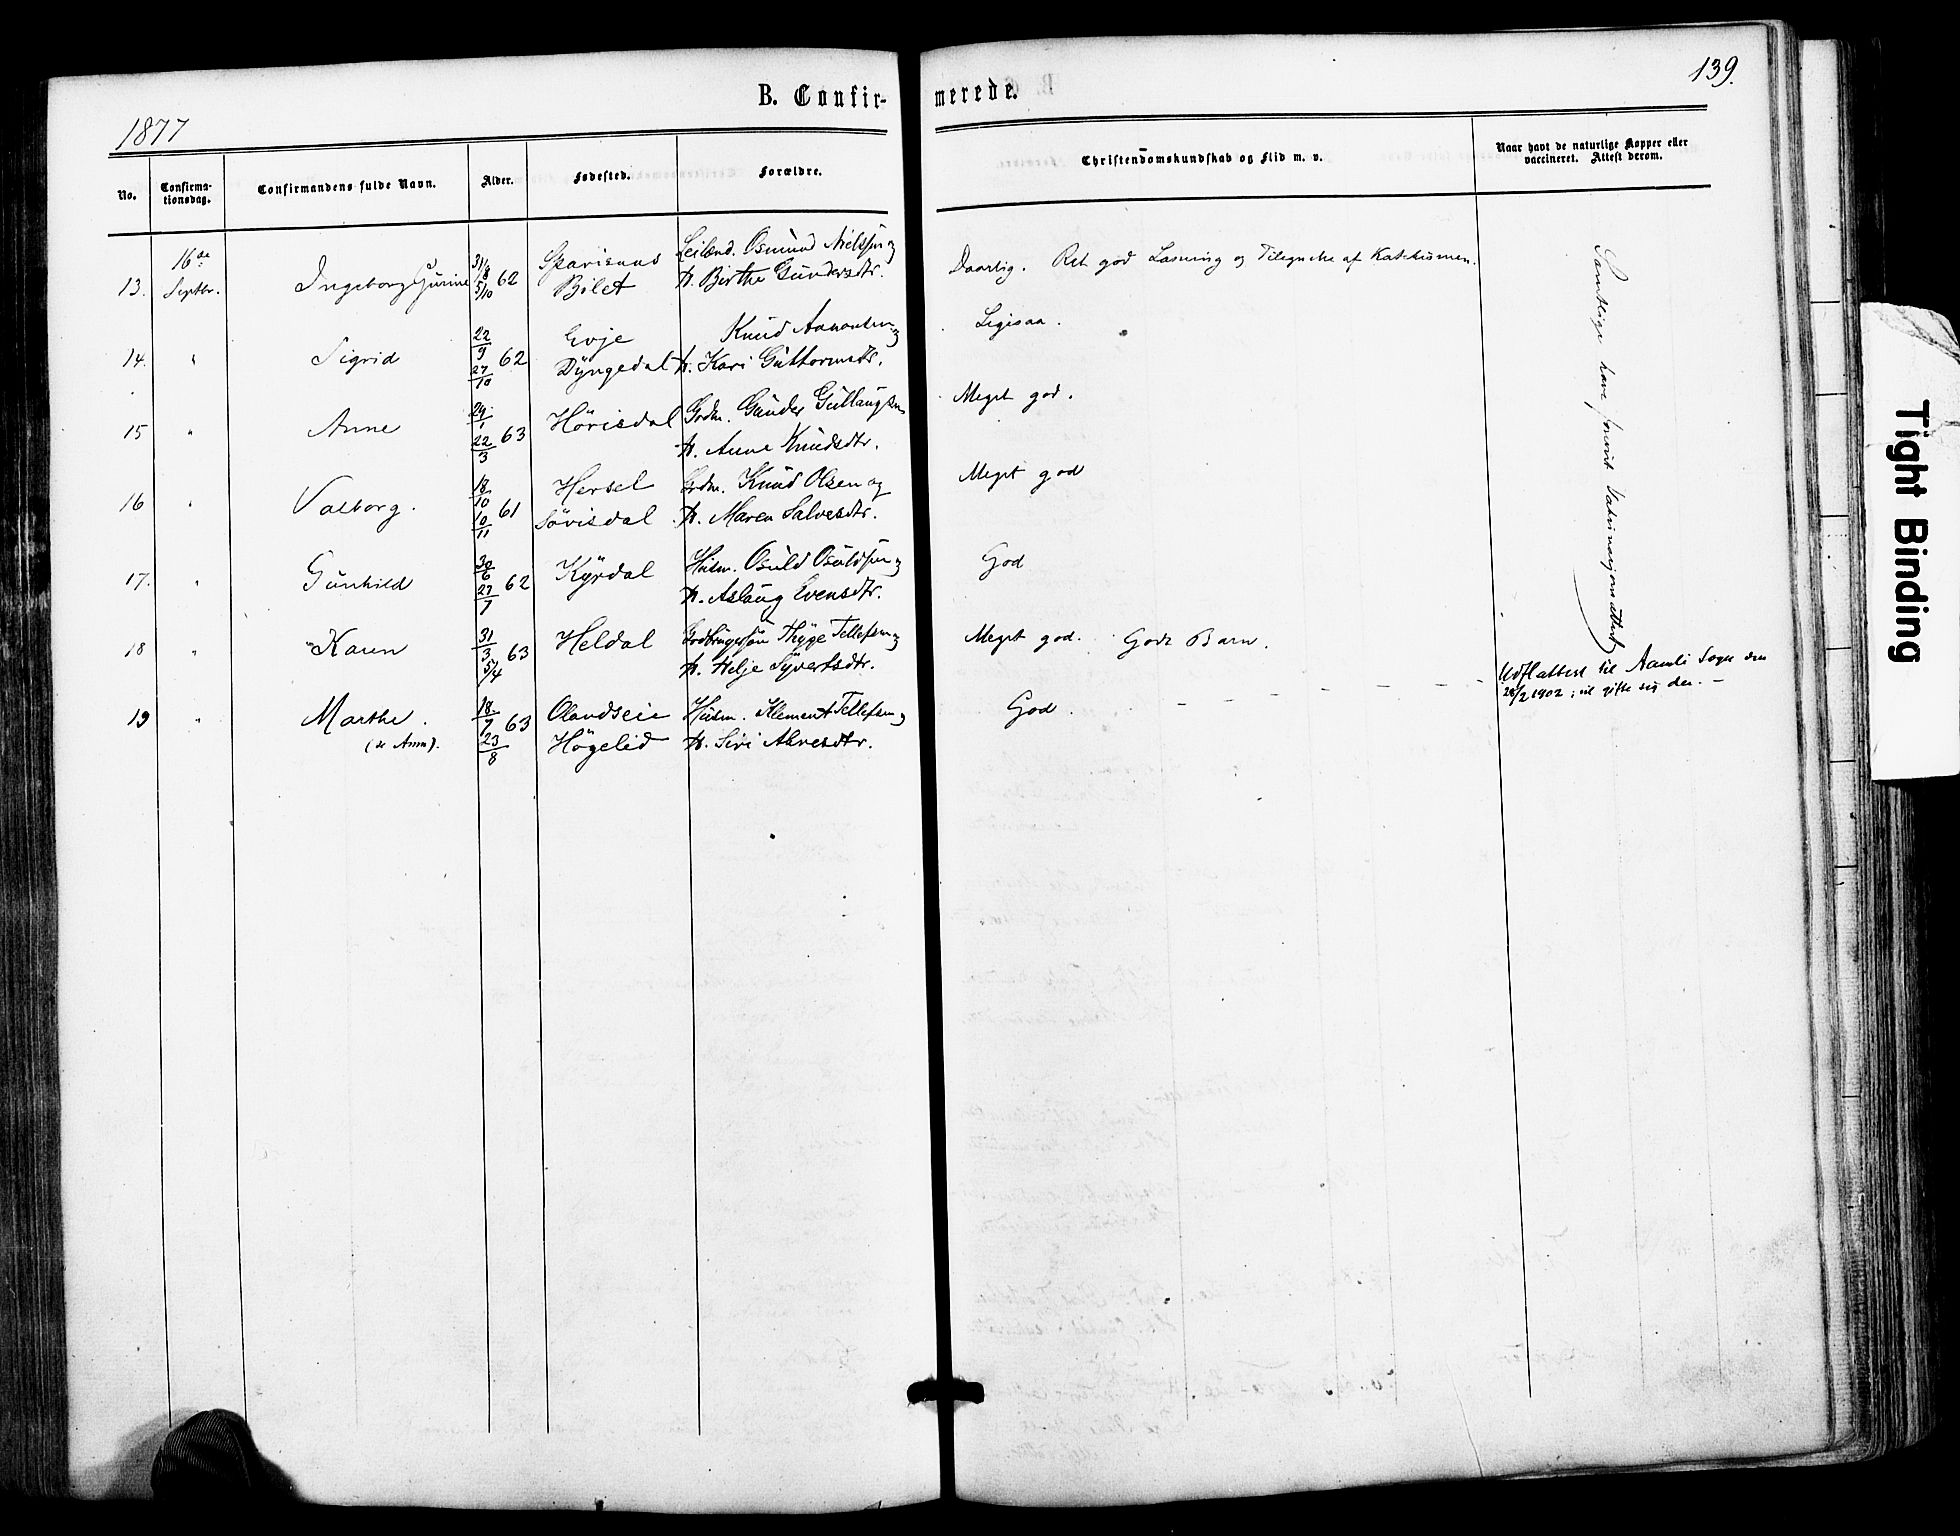 139.
B. Confir- merede.
1877
No. Confirma-tionsdag. Confirmandens fulde Navn. Alder. Fødested. Forældre. Christendomskundskab og Flid m. v. Naar havt de naturlige Kopper eller vaccineret. Attest derom.
13. 16de Septbr. Ingeborg Gurine 31/8 5/10 62 Bilet Leilænd. Osmund Nielssen og H. Birthe Gundersdtr. Daarlig. Ret god Læsning og Tilegnelse af Katekismen.
14. " Sigrid 22/9 27/10 62 Evje Dyngedal Knud Aanonsen og H. Kari Guttormsdtr. Ligesaa.
15 " Anne 29/1 22/3 63 Hörisdal Grdm. Gunder Gullaugsen H. Anne Knudsdtr. Meget god.
16 " Valborg. 18/10 10/11 61 Hersel Sövisdal Grdm. Knud Olsen og H. Maren Salvesdtr. Meget god
17. " Gunhild 30/6 27/7 62 Kyrdal Husm. Osuld Osuldsen og H. Aslaug Evensdtr. God
18 " Karen 31/3 5/4 63 Heldal Thyge Tellefsen og H. Helje Syvertsdtr. Meget god. Godt Barn. Udflattest til Aamli Sogn den 28/2 1902; vil gifte sig der. –
19 " Marthe. 18/7 23/8 63 Olandseie Högelid Husm. Klement Tellefsen og H. Siri Alvesdtr. God.
Samtlige have forevist Vaksinasjonsattest
Tight Binding